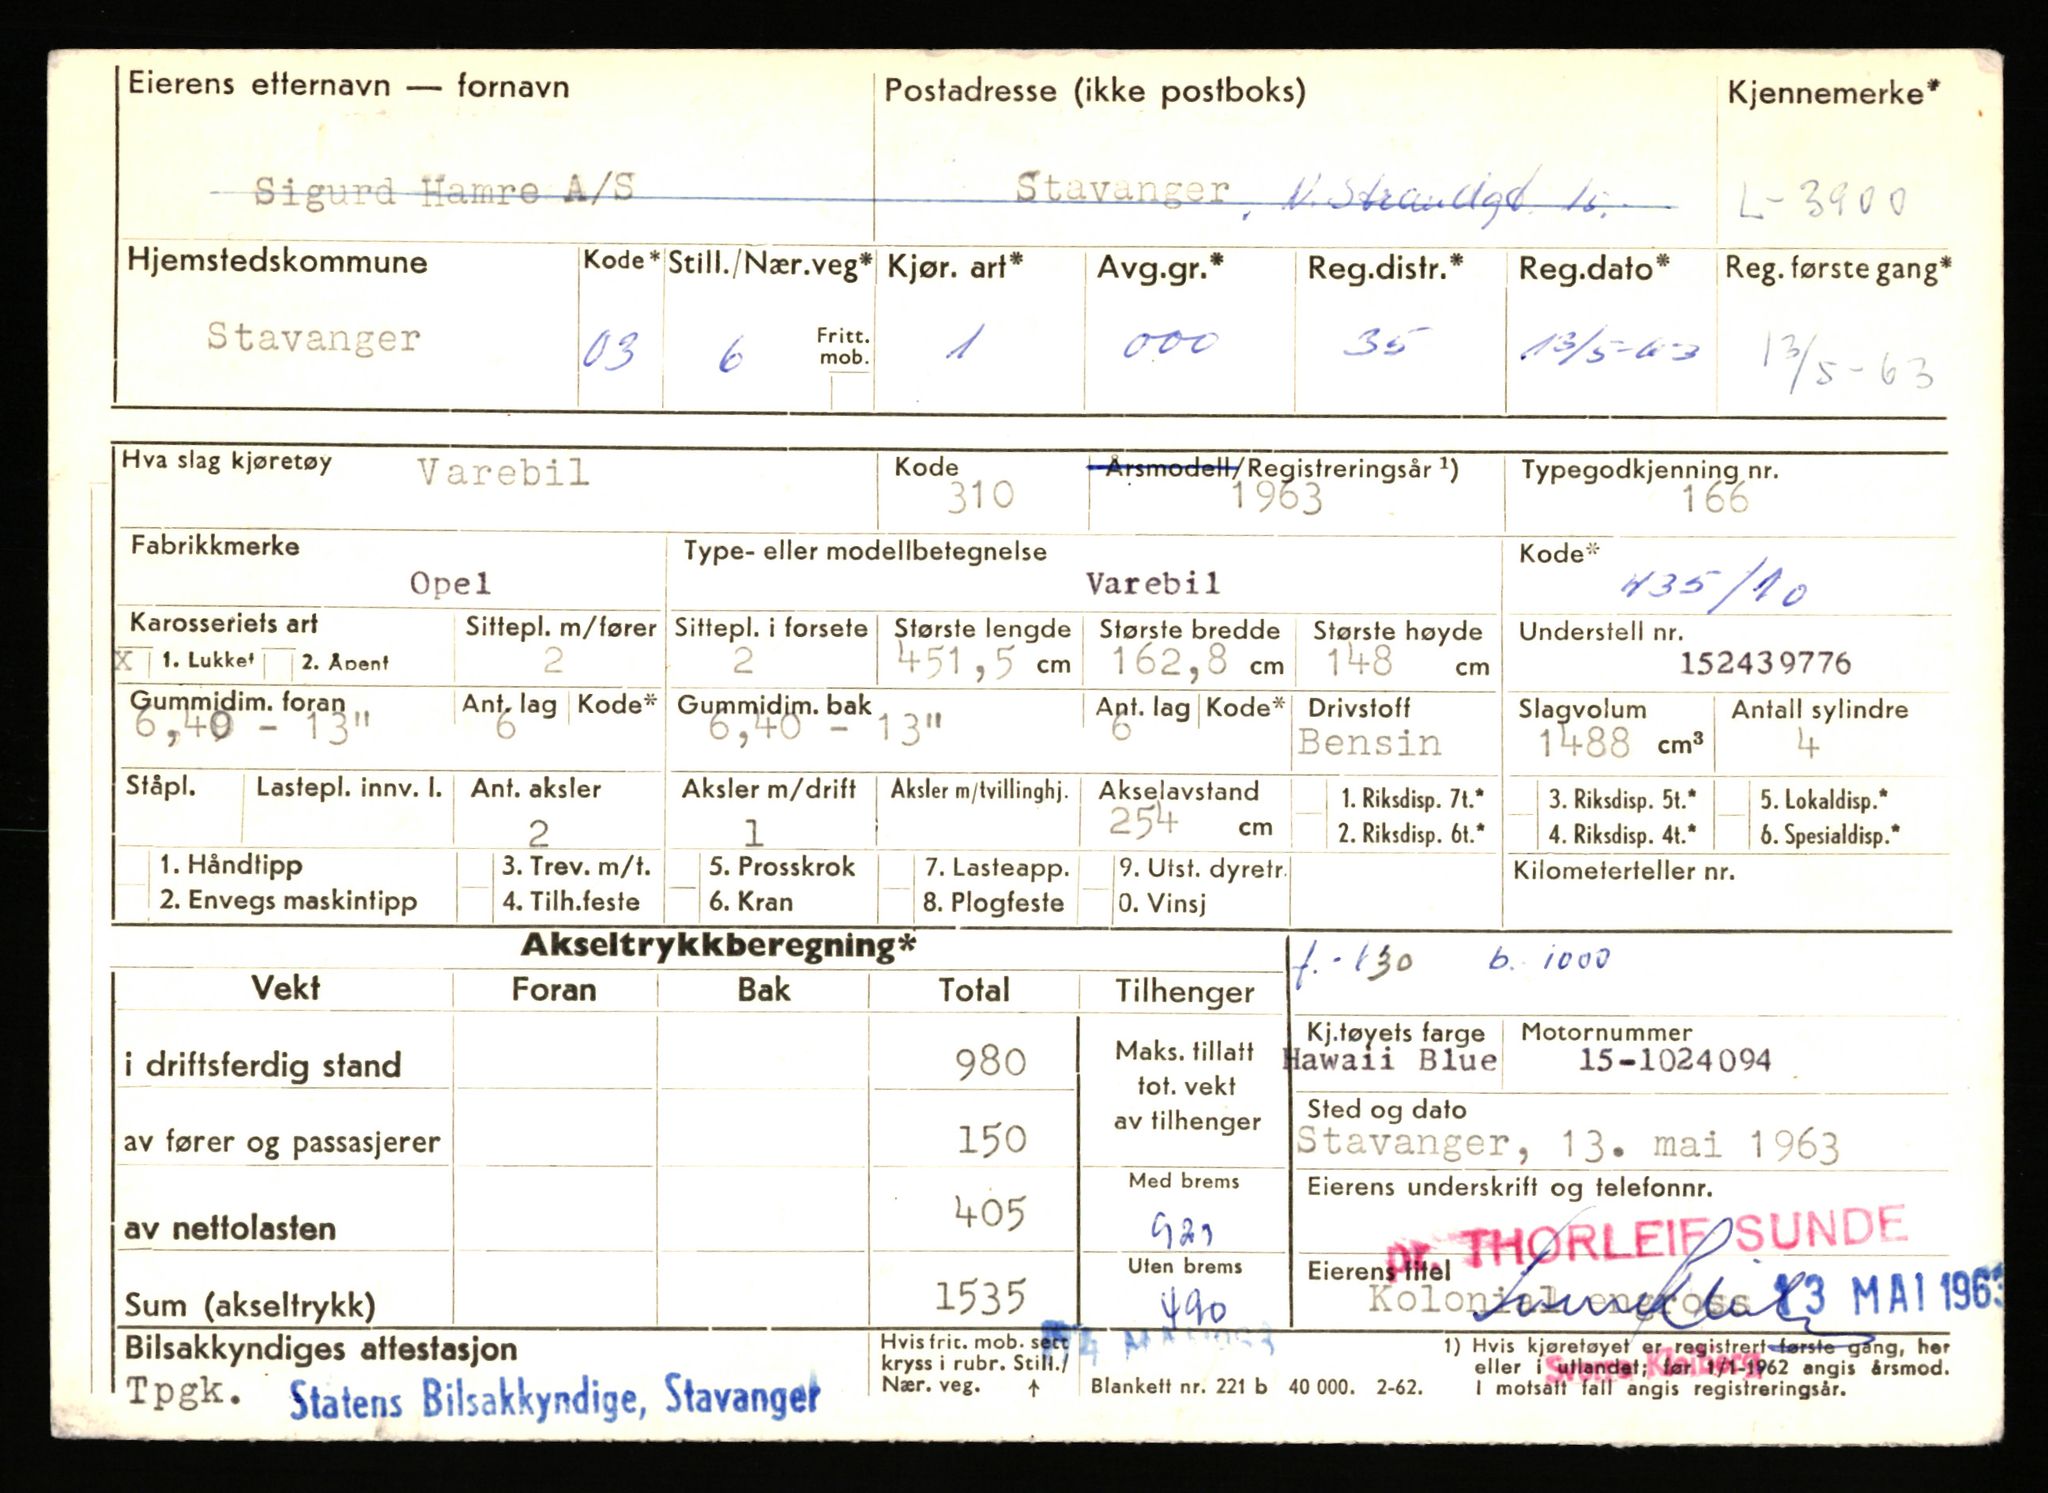 Eierens etternavn — fornavn Postadresse (ikke postboks) Kjennemerke*
Sigurd Hamre A/S Stavanger, N. Strandgt. L-3900
Hjemstedskommune Kode* Still./Nær.veg* Kjør. art* Avg.gr.* Reg.distr.* Reg.dato* Reg. første gang*
Stavanger 03 6 Fritt. mob. 1 000 35 13/5-63 13/5-63
Hva slag kjøretøy Varebil Kode 310 Årsmodell/Registreringsår ¹) 1963 Typegodkjenning nr. 166
Fabrikkmerke Type- eller modellbetegnelse Kode*
Opel Varebil 435/10
Karosseriets art Sittepl. m/fører Sittepl. i forsete Største lengde Største bredde Største høyde Understell nr.
X 1. Lukket 2. Åpent 2 2 451,5 cm 162,8 cm 148 cm 152439776
Gummidim. foran Ant. lag Kode* Gummidim. bak Ant. lag Kode* Drivstoff Slagvolum Antall sylindre
6,40 - 13" 6 6,40 - 13" 6 Bensin 1488 cm³ 4
Ståpl. Lastepl. innv. l. Ant. aksler Aksler m/drift Aksler m/tvillinghj. Akselavstand 1. Riksdisp. 7t.* 3. Riksdisp. 5t.* 5. Lokaldisp.*
2 1 254 cm 2. Riksdisp. 6t.* 4. Riksdisp. 4t.* 6. Spesialdisp.*
1. Håndtipp 3. Trev. m/t. 5. Prosskrok 7. Lasteapp. 9. Utst. dyretr. Kilometerteller nr.
2. Envegs maskintipp 4. Tilh.feste 6. Kran 8. Plogfeste 0. Vinsj
Akseltrykkberegning* b. 1000
Vekt Foran Bak Total Tilhenger
i driftsferdig stand 980 Maks. tillatt tot. vekt av tilhenger
Kj.tøyets farge Motornummer
Hawaii Blue 15-1024094
Sted og dato
av fører og passasjerer 150 Stavanger, 13. mai 1963
Med brems Eierens underskrift og telefonnr.
av nettolasten 405 pr. THORLEIF SUNDE
Uten brems Eierens titel
Sum (akseltrykk) 1535 490 Kolonial engross 13 MAI 1963
Bilsakkyndiges attestasjon
Tpgk. Statens Bilsakkyndige, Stavanger
Hvis frit. mob. sett
kryss i rubr. Still./
Nær. veg. ↑ Blankett nr. 221 b 40 000. 2-62.
1) Hvis kjøretøyet er registrert første gang, her
eller i utlandet, før 1/1-1962 angis årsmod.
I motsatt fall angis registreringsår.